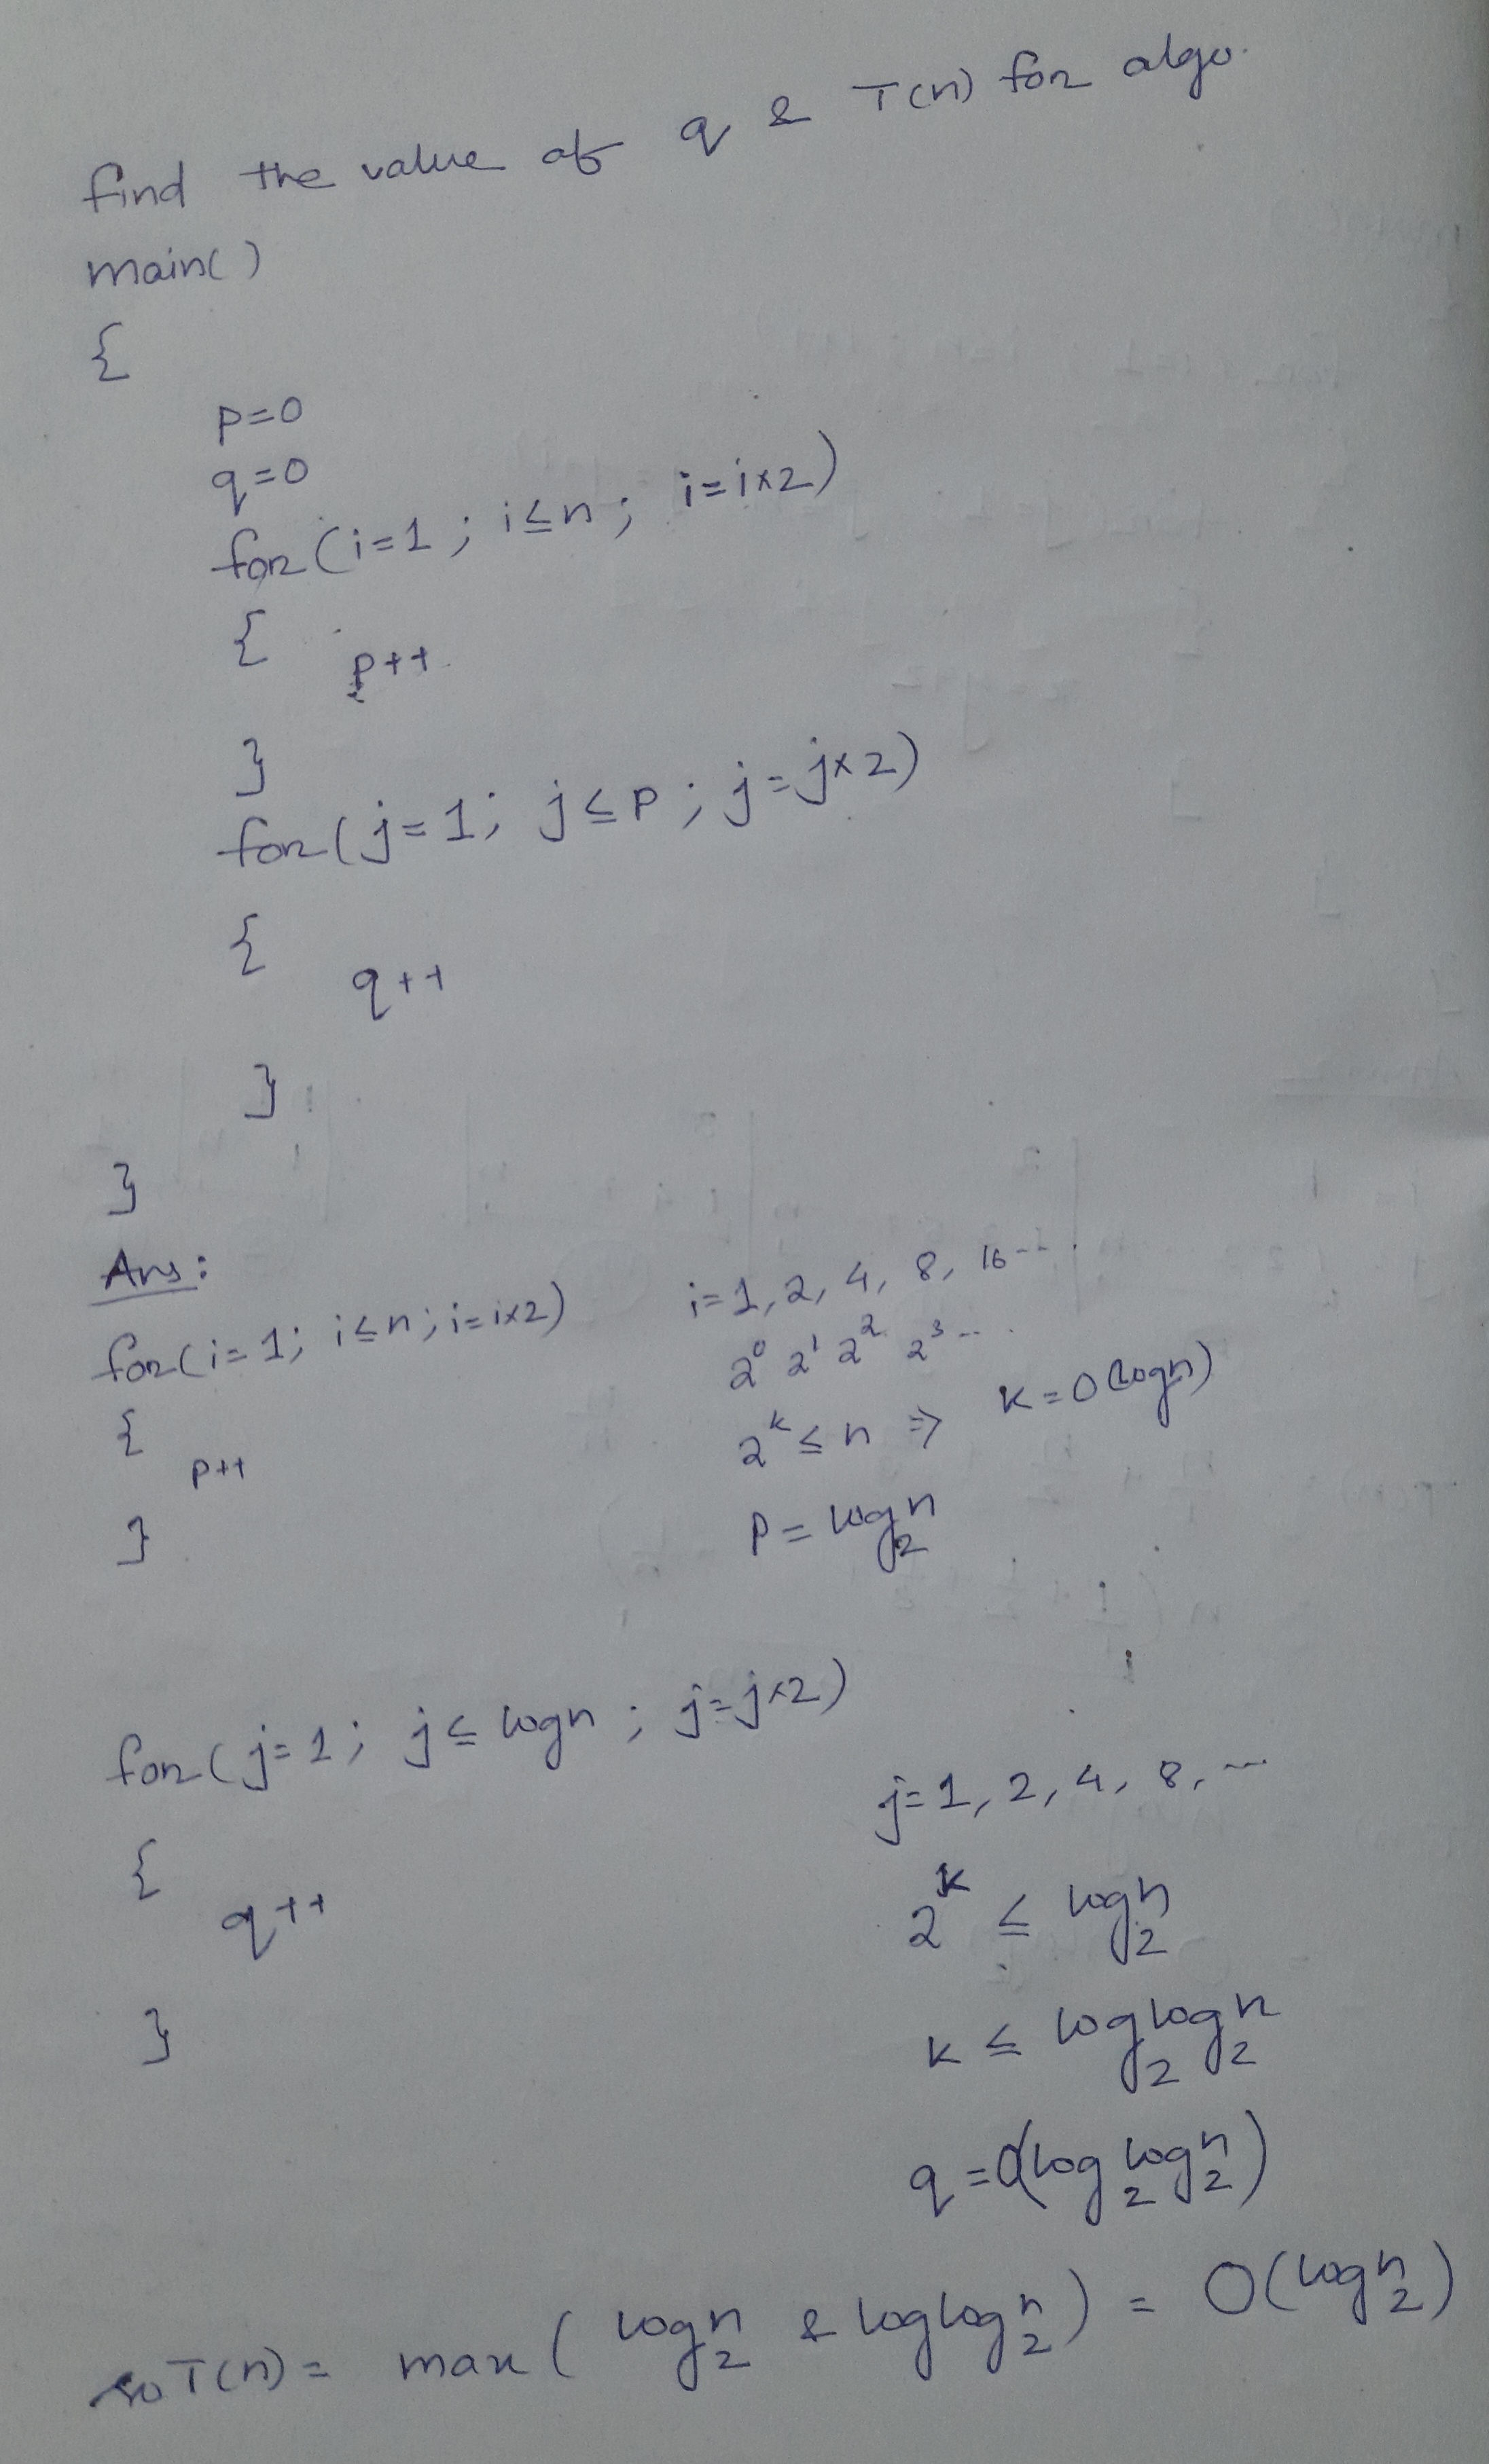 find the value of q & T(n) for algo.
main()
{
p=0
q=0
for(i=1; i≤n; i=i×2)
{
p++
}
for(j=1; j≤p; j=j×2)
{
q++
}
}
Ans:
for(i=1; i≤n; i=i×2) i=1, 2, 4, 8, 16---
{ 2⁰ 2¹ 2² 2³---
p++ 2ᵏ≤n ⇒ k=O(logn)
} p=log₂n
for(j=1; j≤logn; j=j×2)
j=1, 2, 4, 8, ---
{
q++ 2ᵏ ≤ log₂n
} k ≤ log₂log₂n
q=O(log₂log₂n)
so T(n) = max( log₂n & loglog₂n) = O(log₂n)